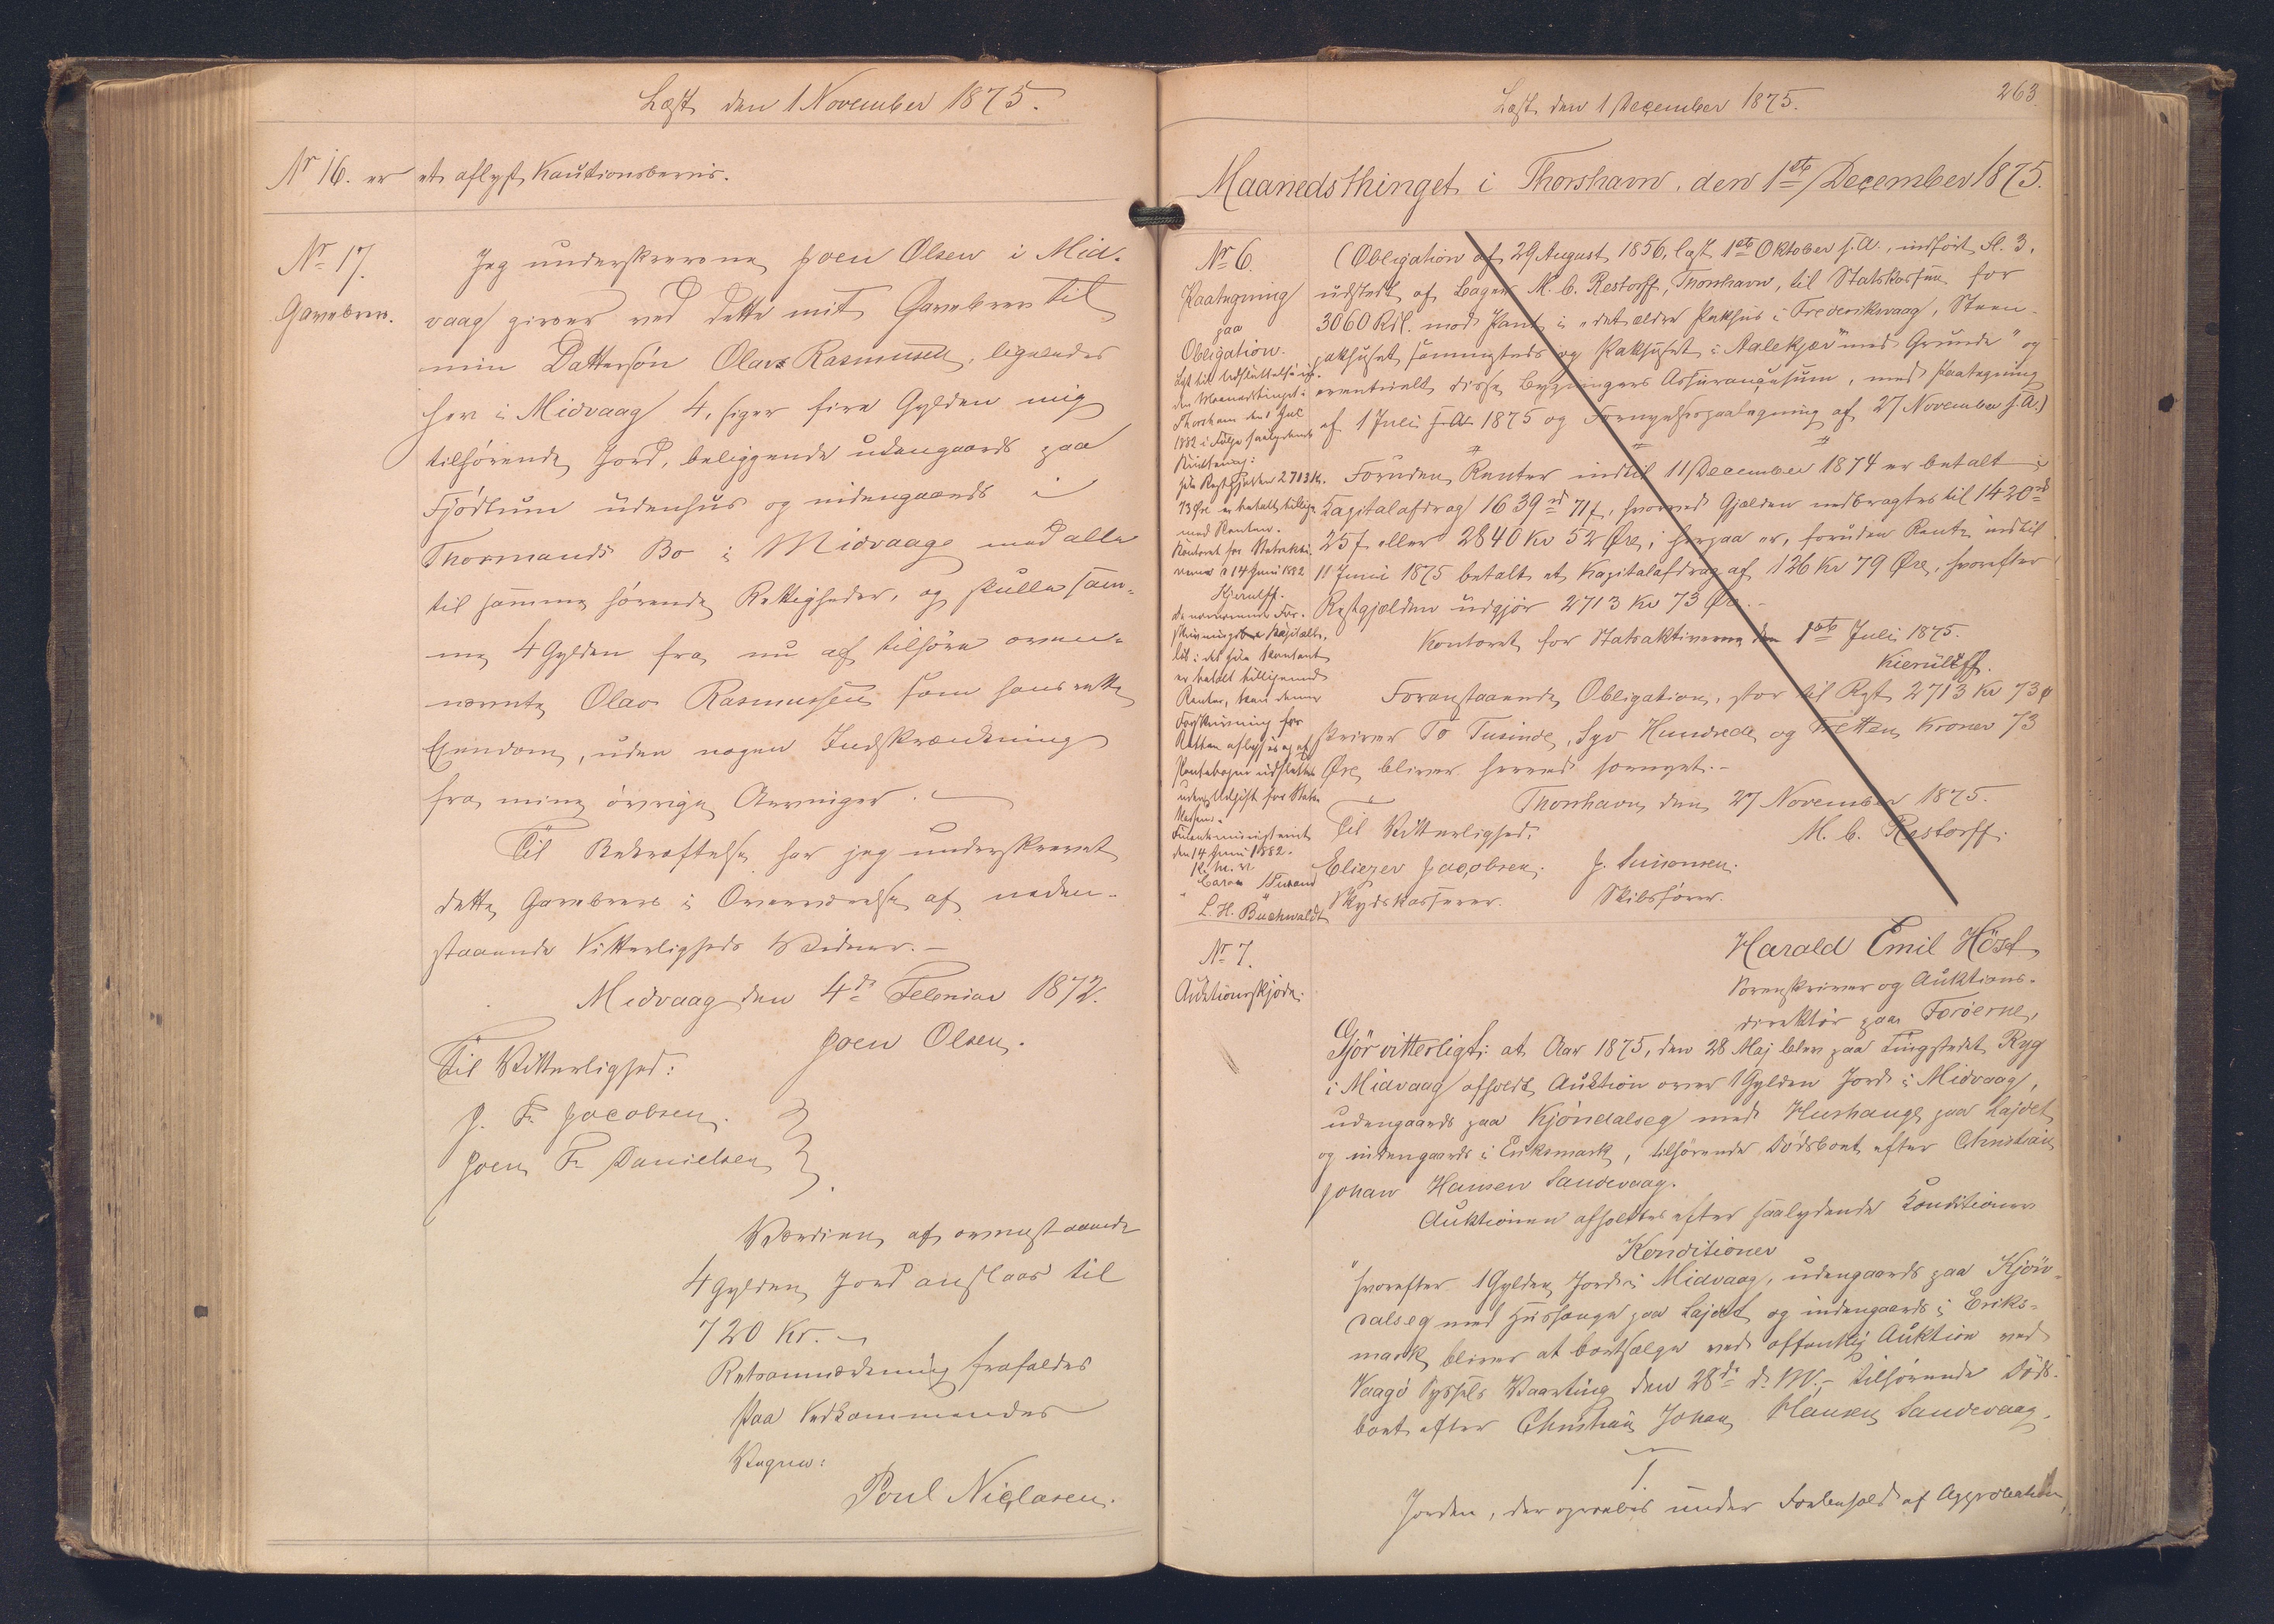 Læst den 1 November 1875.
Nr 16. er et aflyst Kautionsbevis.
Nr 17.
Gavebrev.
Jeg underskrevne Joen Olsen i Mid-
vaag giver ved dette mit Gavebrev til
min Dattersön Olavs Rasmussen, ligeledes
her i Midvaag 4, siger fire Gylden mig
tilhörende Jord, beliggende udengaards paa
Fjödtum udenhus og indengaards i
Thormands Bo i Midvaage med alle
til samme hörende Rettigheder, og skulle sam-
me 4 Gylden fra nu af tilhöre oven-
nevnte Olav Rasmussen som hans rette
Ejendom, uden nogen Indskrænkning
fra mine övrige Arvinger.
Til Bekræftelse har jeg underskrevet
dette Gavebrev i Overværelse af neden-
staaende Vitterligheds Vidner.-
Midvaag den 4de Februar 1872.
Joen Olsen.
Til Vitterlighed:
J. Fr. Jacobsen.
Joen Fr. Danielsen
Værdien af ovenstaaende
4 Gylden Jord anslaas til
720 Kr.-
Retsanmærkning frafaldes
Paa Vedkommendes
Vegne:
Poul Niclasen.
Læst den 1 December 1875.
263.
Maanedsthinget i Thorshavn, den 1ste December 1875.
Nr 6.
Paategning
paa
Obligation.
Lyst til Udslettelse
den Maanedsting i
Thorshavn den 1 Juli
1882 i Følge saalydende
Kvittering:
Hele Restgjælden 2713 Kr.
73 Øre er betalt tillige
med Renten.
Kontoret for Statsakti-
verne d 14 Juni 1882
Kjerulff.
Da nærværende For-
skrivnings Kapital
i det Hele Kontant
er betalt tilligemed
Renter, kan denne
Forskrivning for
Retten aflyses og af
Pantebogen udslettes
uden Udgift for Stats-
kassen.
Finantsministeriet
den 14 Juni 1882.
P. M. V.
L. H. Buchwaldt
(Obligation af 29 August 1856, læst 1ste Oktober s.A., indfört Fl. 3,
udstedt af Bager M. C. Restorff, Thorshavn, til Statskassen for
3060 Rdl. mod Pant i "det ældre Pakhus i Frederiksvaag, Steen-
pakhuset sammesteds og Pakhuset i Aalekjær med Grunde" og
eventuelt disse Bygningers Assurancesum, med Paategning
af 1 Juli s.A. 1875 og Fornyelsespaategning af 27 November s.A.)
Foruden Renter indtil 11 December 1874 er betalt i
Kapitalafdrag 1639 rd 71 s, hvorved Gjælden nedbragtes til 1420 rd
25 s eller 2840 Kr 52 Øre; herpaa er, foruden Rente indtil
11 Juni 1875 betalt et Kapitalafdrag af 126 Kr 79 Øre, hvorefter
Restgjælden udgjör 2713 Kr 73 Øre.-
Kontoret for Statsaktiverne den 1ste Juli 1875.
Kierulff.
Foranstaaende Obligation, stor til Rest 2713 Kr 73 Ø
skriver To Tusinde, Syv Hundrede og Tretten Kroner 73
Øre bliver herved fornyet.-
Thorshavn den 27 November 1875.
M. C. Restorff.
Til Vitterlighed:
Eliezer Jacobsen. J. Simonsen.
Skydskasserer. Skibsförer.
Nr 7.
Auktionsskjöde.
Harald Emil Höst
Sorenskriver og Auktions-
direktör paa Færöerne,
Gjör vitterligt: at Aar 1875, den 28 Maj blev paa Tingstedet Ryg
i Midvaag afholdt Auktion over 1 Gylden Jord i Midvaag,
udengaards paa Kjöndalseg med Hushauge paa Lajdet
og indengaards i Eriksmark, tilhörende Dödsboet efter Christian
Johan Hansen Sandevaag.
Auktionen afholdtes efter saalydende Konditioner
Konditioner
"hvorefter 1 Gylden Jord i Midvaag, udengaards paa Kjön-
dalseg med Hushauge paa Lajdet og indengaards i Eriks-
mark, bliver at bortsælge ved offentlig Auktion ved
Vaagö Syssels Vaarting den 28de d. M.- tilhörende Döds-
boet efter Christian Johan Hansen Sandevaag.
1.
Jorden, der opraabes under Forbehold af Approbation,